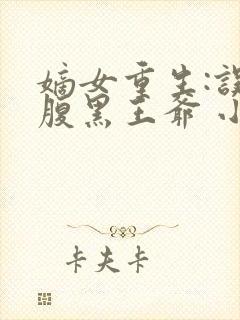 嫡女重生:误
腹黑王爷 小
卡夫卡